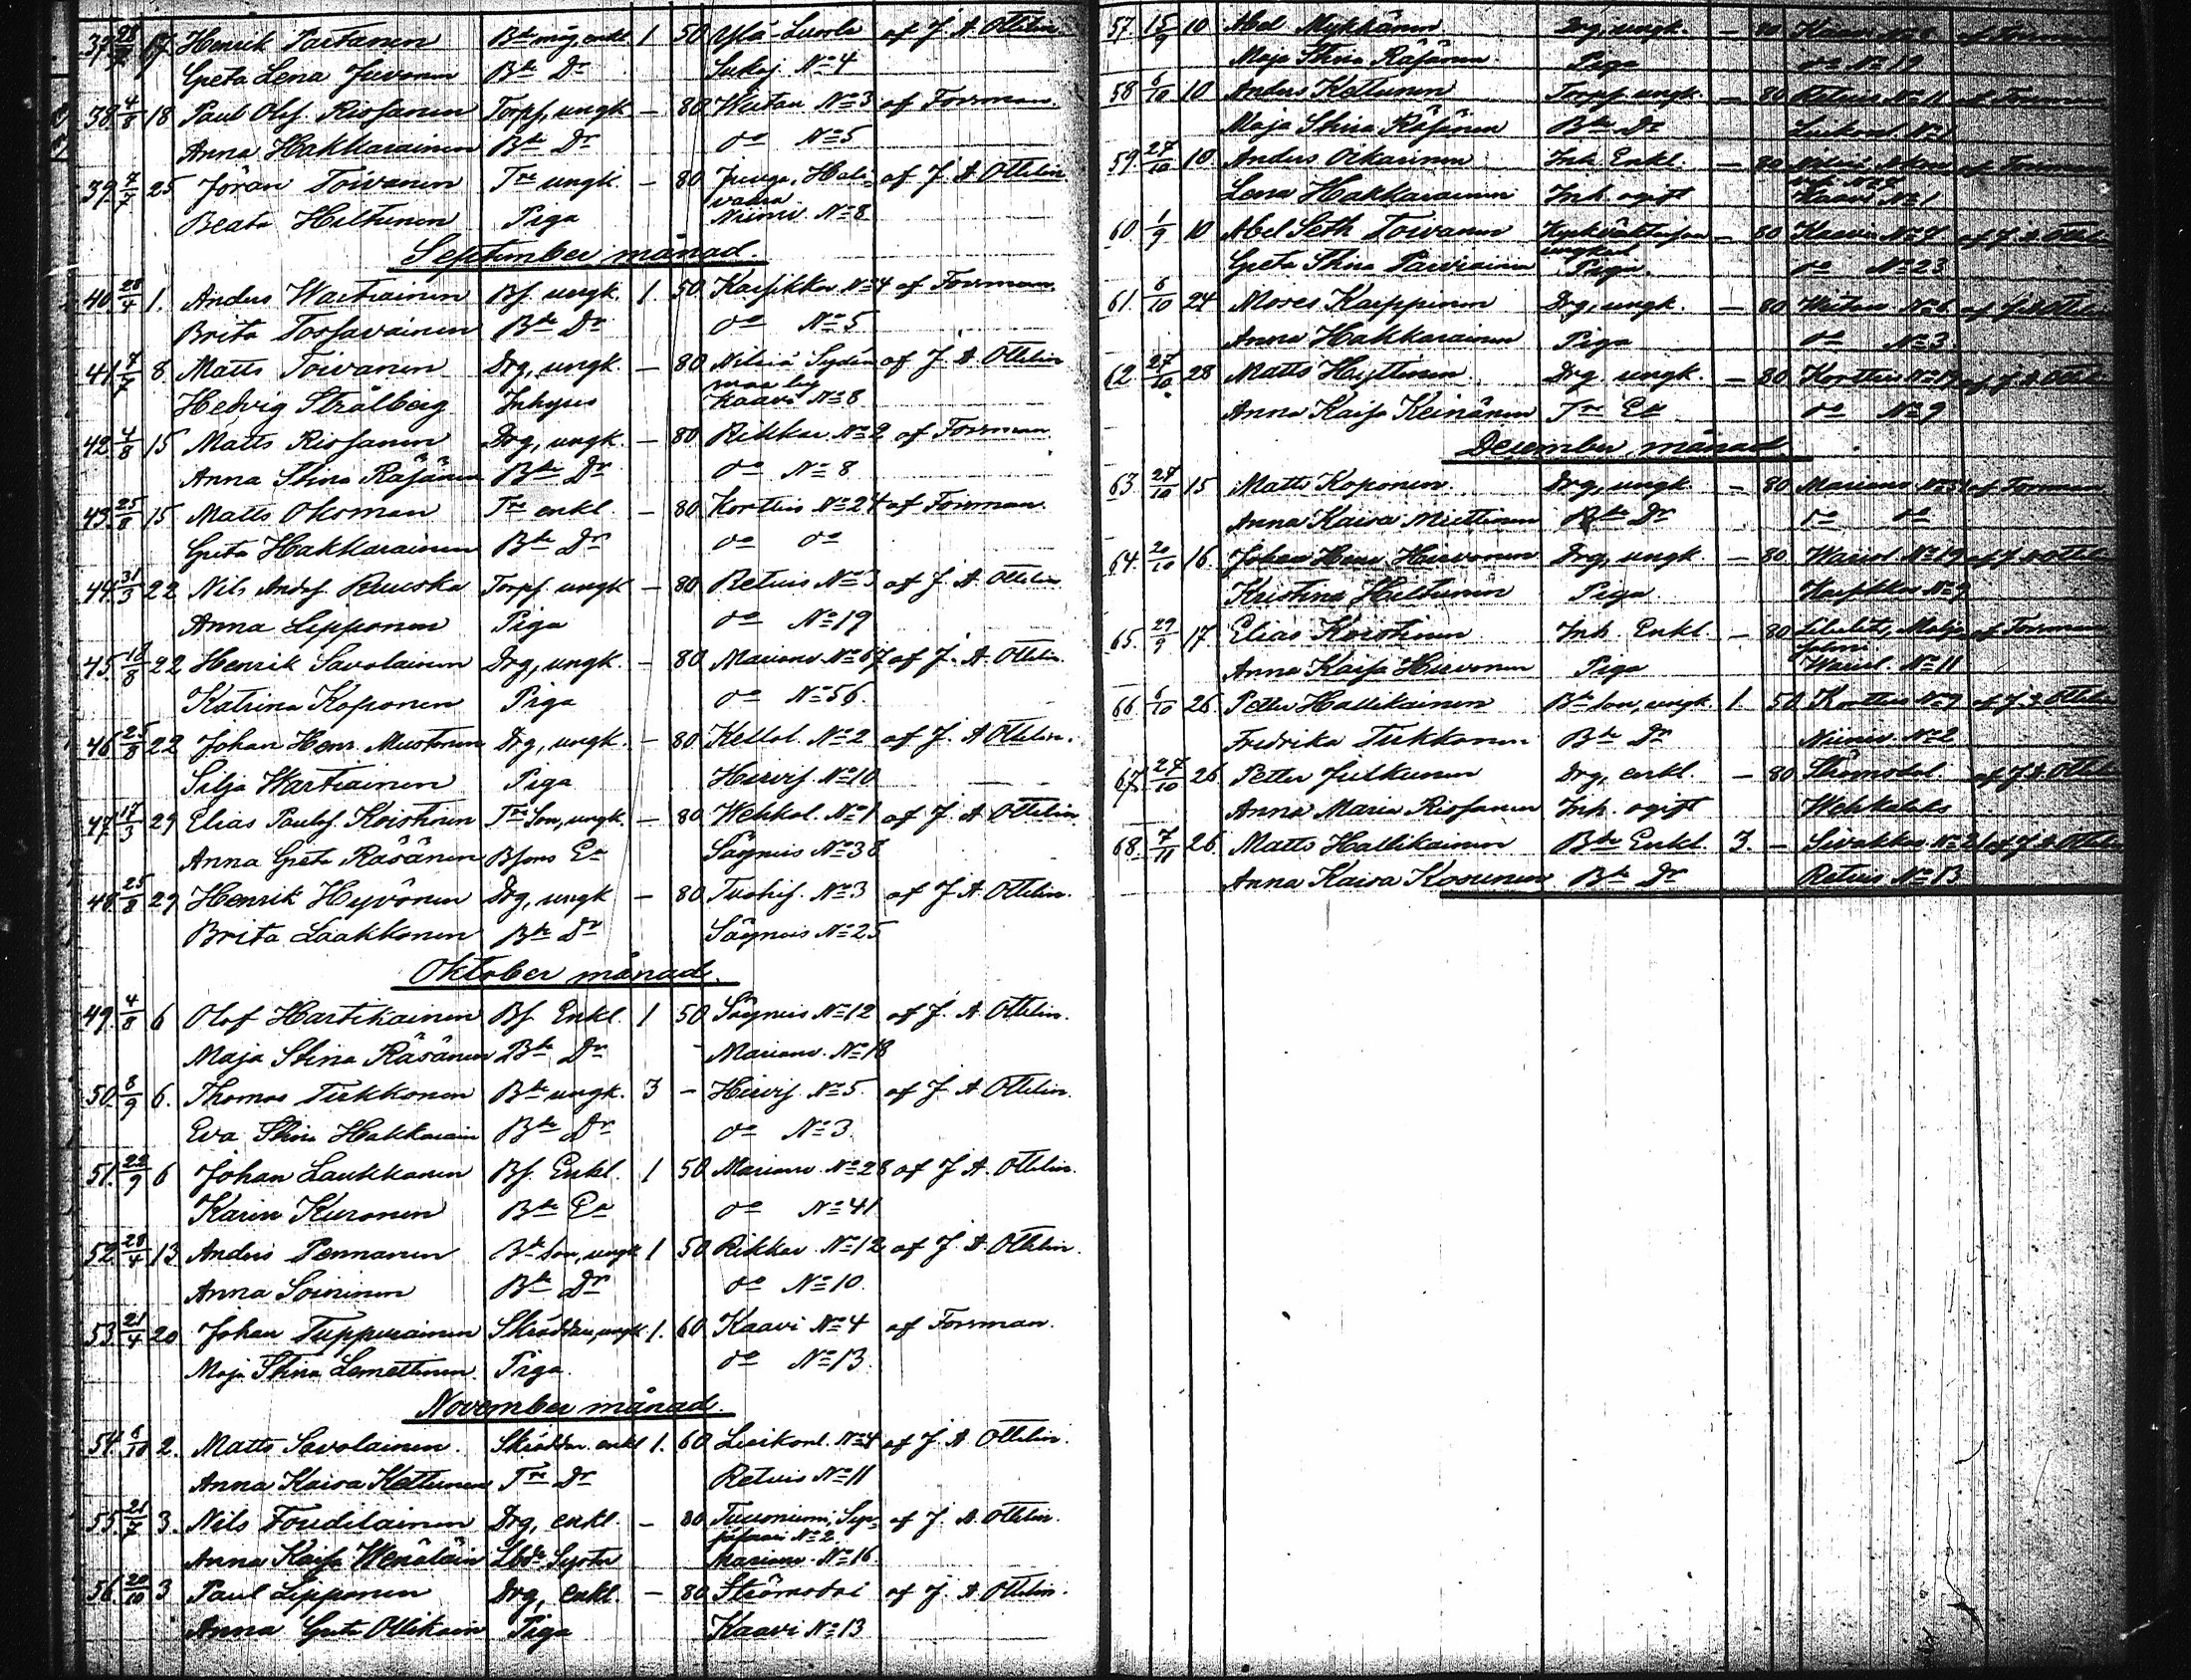 37. 28/7 17 Henrik Partanen Bde måg, enkl 1 50 Ylä-Luosta af J. A. Ottelin.
Greta Lena Juvonen Bde Dr Sukej. No 4
38. 4/8 18 Paul Olof Riosanen Torpf, ungk. — 80 Wiitan. No 3 af Forsman.
Anna Hakkarainen Bde Dr do No 5
39. 7/7 25 Jöran Toivanen Tre ungk. — 80 Juuga, Hali- af J. A. Ottelin
vaara
Beata Hiltunen Piga Niiniv. No 8
September månad.
40. 28/4 1. Anders Wartiainen Bf. ungk. 1. 50 Karsikko No 4 af Forsman.
Brita Torfavainen Bde Dr do No 5
41. 7/7 8 Matts Toivanen Drg, ungk. — 80 Nilsiä Sydän- af J. A. Ottelin
maa by
Hedvig Strålberg Inhyses Kaavi No 8
42. 4/8 15 Matts Riosanen Drg, ungk. — 80 Rikkar. No 2 af Forsman.
Anna Stina Räsänen Bde Dr do No 8
43. 25/8 15 Matts Okoman Tre enkl. — 80 Kortteis No 24 af Forsman.
Greta Hakkarainen Bde Dr do do
44. 31/3 22 Nils Andsf. Ruuska Torpf. ungk — 80 Retuis No 3 af J. A. Ottelin.
Anna Lipponen Piga do No 19
45. 18/8 22 Henrik Savolainen Drg, ungk. — 80 Marianv. No 67 af J. A. Ottelin.
Katrina Koponen Piga do No 56.
46. 25/8 22 Johan Henr. Mustonen Drg, ungk. — 80 Keltol. No 2 af J. A. Ottelin.
Silja Wartiainen Piga Hirvij. No 10
47. 17/3 29 Elias Paulsf. Koistinen Tre Son, ungk. — 80 Wehkal. No 1 af J. A. Ottelin.
Anna Greta Räsänen Bfons Ea Sägneis No 38
48. 25/8 29 Henrik Hyvönen Drg, ungk — 80 Tuohij. No 3 af J. A. Ottelin.
Brita Laakkonen Bde Dr Sägneis No 25
Oktober månad.
49. 4/8 6 Olof Hartikainen Bf. Enkl. 1 50 Sägneis No 12 af J. A. Ottelin.
Maja Stina Räsänen Bde Dr Marianv. No 18
50. 8/9 6. Thomas Tirkkonen Bde ungk. 3 — Hirvij. No 5. af J. A. Ottelin.
Eva Stina Hakkarain Bde Dr do No 3.
51. 22/9 6 Johan Laukkanen Bf. Enkl. 1 50 Marianv. No 28 af J. A. Ottelin.
Karin Kuronen Bde Ea do No 41
52. 28/4 13 Anders Pennanen Bde Son, ungk 1 50 Rikkav. No 12 af J. A. Ottelin.
Anna Soininen Bde Dr do No 10.
53. 21/4 20 Johan Tuppurainen Skräddare, ungk 1. 60 Kaavi No 4 af Forsman.
Maja Stina Lemettinen. Piga. do No 13.
November månad.
54. 6/10 2. Matts Savolainen. Skräddar. enkl 1. 60 Luikonl. No 4 af J. A. Ottelin.
Anna Kaisa Kettunen Tre Dr Retuis No 11
55. 21/7 3. Nils Toudilainen Drg, enkl. — 80 Tuusniemi, af J. A. Ottelin.
No 2.
Anna Kaisa Wenäläin Lbde Syster Marianv. No 16.
56. 20/10 3 Paul Lipponen Drg, enkl. — 80 Strömsdal af J. A. Ottelin.
Anna Greta Ollikain Piga Kaavi No 13
57. 15/9 10 Abel Mykkänen Drg, ungk. — 80 Kaavi No 8 af Forsman
Maja Stina Räsänen Piga do No 19
58 6/10 10 Anders Kettunen Torpf ungk. — 80 Retuis No 11 af Forsman
Maja Stina Räsänen Bde Dr Luikonl. No 1
59. 27/10 10. Anders Oikarinen Inh. Enkl. — 80 Nilsiä af Forsman
Lena Hakkarainen Inh. ogift Kaavi No 1
60. 1/9 10 Abel Seth Toivanen Kyrkväktarson — 80 Kaavi No 9 af J. A. Ottelin
ungkarl
Greta Stina Parviainen Piga. do No 23
61. 6/10 24 Moses Karppinen Drg, ungk. — 80 Wiitan No 6. af J. A. Ottelin
Anna Hakkarainen Piga do No 3.
62. 27/10 28 Matts Hyttinen. Drg ungk. — 80 Kortteis No 19 af J. A. Ottelin
Anna Kaisa Keinänen Tre Ea do No 9
December månad.
63. 27/10 15 Matts Koponen. Drg, ungk. — 80 Marianv. No 31 af Forsman
Anna Kaisa Miettinen Bde Dr do do
64. 20/10 16. Johan Henr. Hirvonen Drg, ungk. — 80 Waivol No 19 af J. A. Ottelin
Kristina Hiltunen Piga Karsikko No 9
65. 29/9 17. Elias Koistinen Inh. Enkl — 80 Libelits, af Forsman
Anna Kaisa Hirvonen Piga Waivl. No 11
66 6/10 26. Petter Hallikainen Bde Son, ungk. 1. 50 Kortteis No 9 af J. A. Ottelin
Fredrika Tirkkonen Bde Dr Niiniv. No 2
67. 27/10 26 Petter Julkunen Drg, enkl. — 80 Strömsdal. af J. A. Ottelin
Anna Maria Riosanen Inh. ogift Wehkalaks
68. 7/11 26. Matts Hallikainen Bde Enkl. 3. — Sivakkav. No 21 af J. A. Ottelin
Anna Kaisa Kosunen Bde Dr Retuis No 13